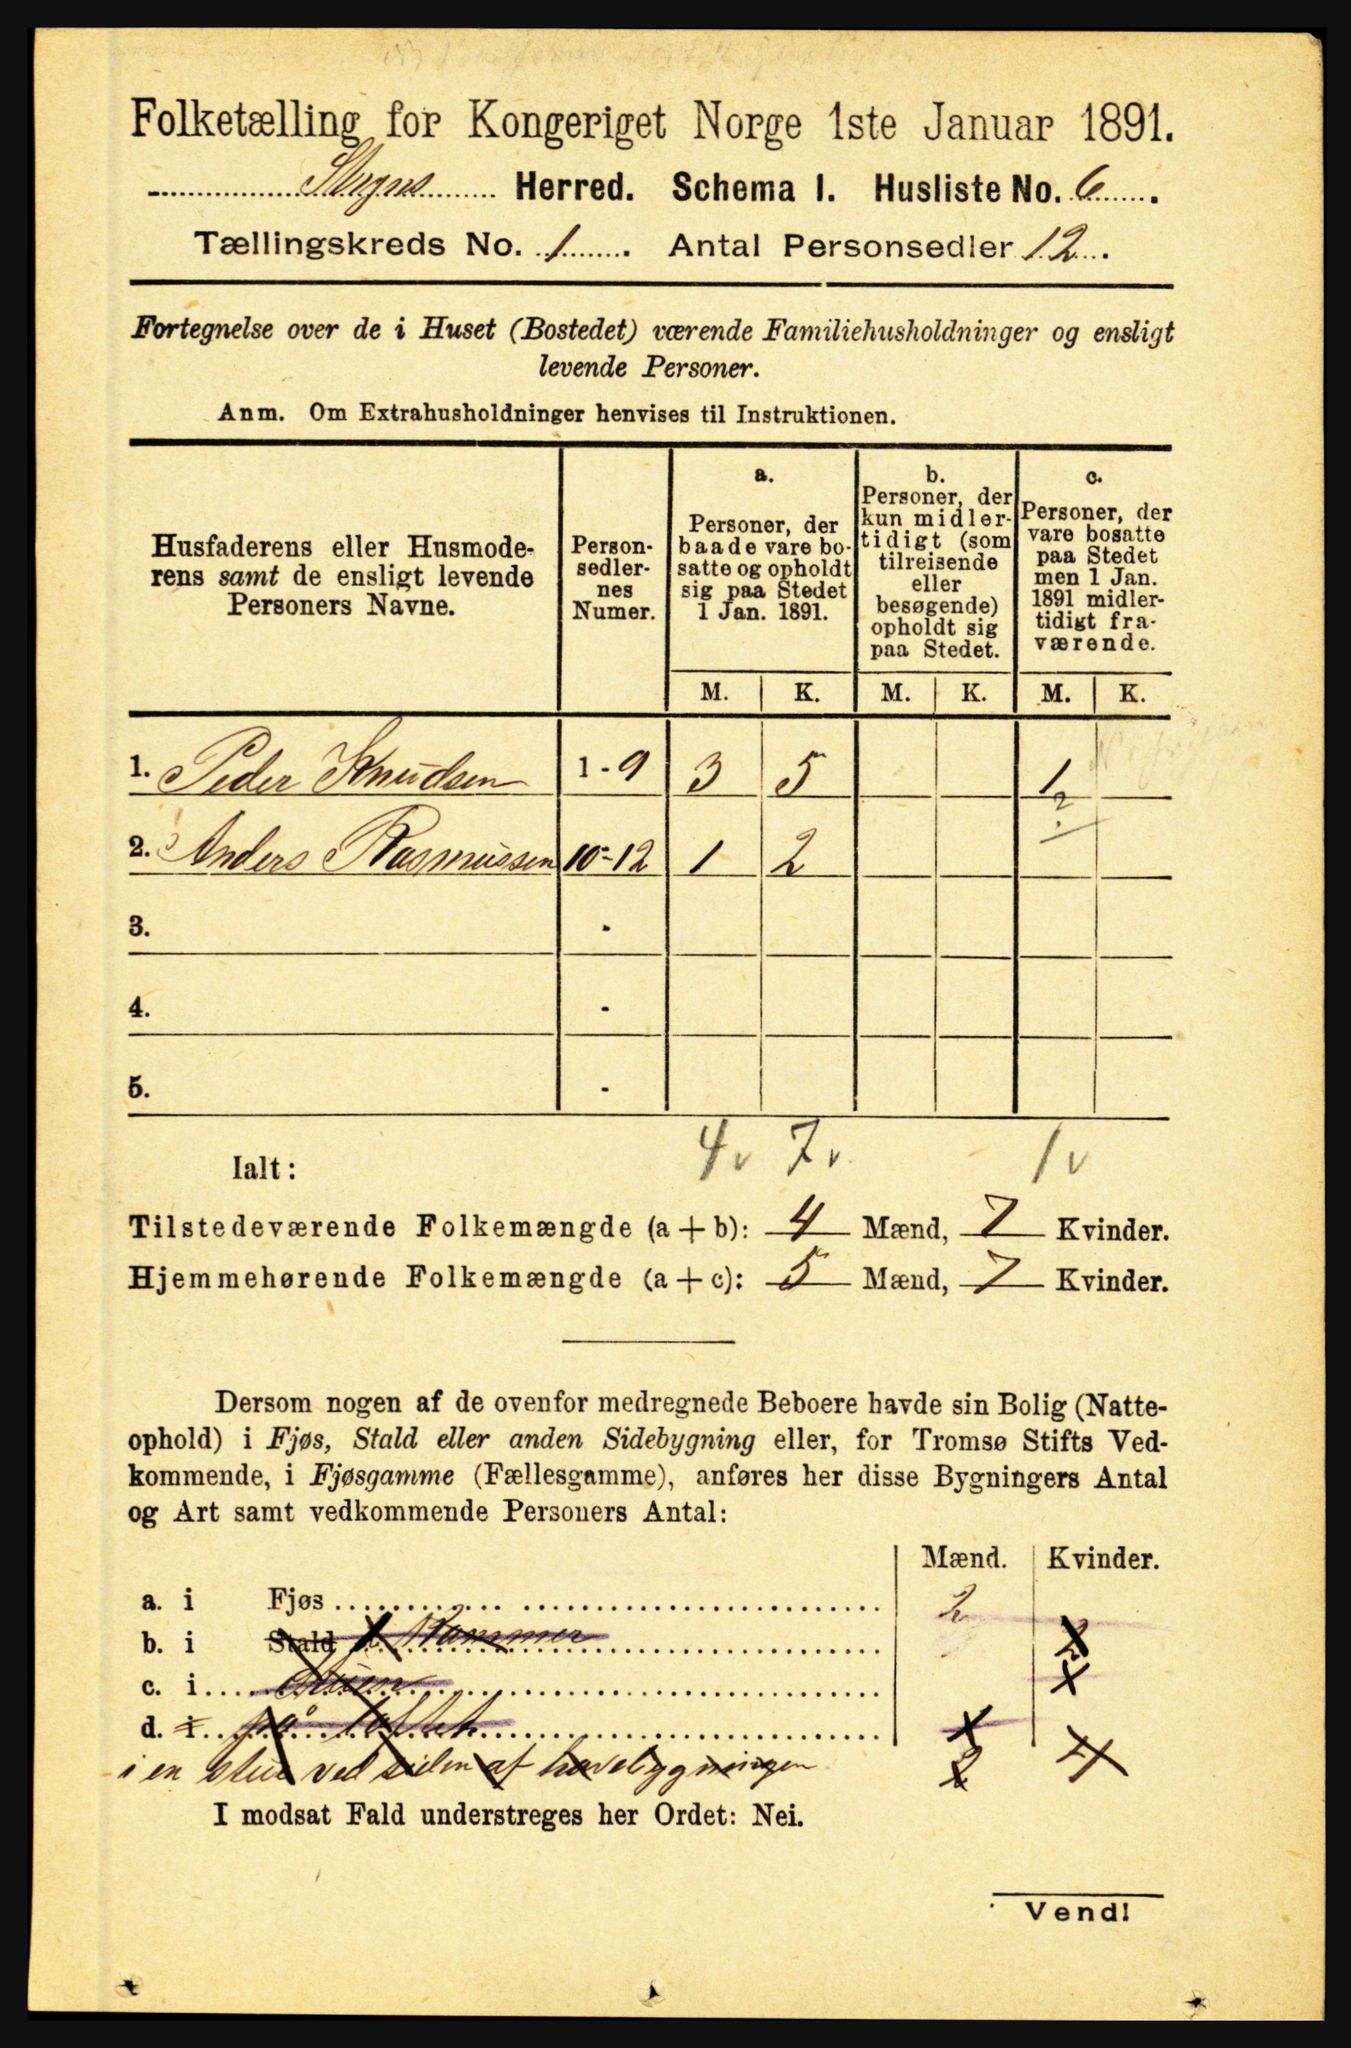 Folketælling for Kongeriget Norge 1ste Januar 1891.
Herred. Schema I. Husliste No. 6.
Tællingskreds No. 1. Antal Personsedler 12.
Fortegnelse over de i Huset (Bostedet) værende Familiehusholdninger og ensligt
levende Personer.
Anm. Om Extrahusholdninger henvises til Instruktionen.
Husfaderens eller Husmode-
rens samt de ensligt levende
Personers Navne.
Person-
sedler-
nes
Numer.
a.
Personer, der
baade vare bo-
satte og opholdt
sig paa Stedet
1 Jan. 1891.
b.
Personer, der
kun midler-
tidigt (som
tilreisende
eller
besøgende)
opholdt sig
paa Stedet.
c.
Personer, der
vare bosatte
paa Stedet
men 1 Jan.
1891 midler-
tidigt fra-
værende.
M. K. M. K. M. K.
1. Peder Knudsen 1 - 9 3 5 1
?
2. Anders Rasmussen 10 - 12 1 2
3. -
4. -
5. -
Ialt: 4 v 7 v 1 v
Tilstedeværende Folkemængde (a + b): 4 Mænd, 7 Kvinder.
Hjemmehørende Folkemængde (a + c): 5 Mænd, 7 Kvinder.
Dersom nogen af de ovenfor medregnede Beboere havde sin Bolig (Natte-
ophold) i Fjøs, Stald eller anden Sidebygning eller, for Tromsø Stifts Ved-
kommende, i Fjøsgamme (Fællesgamme), anføres her disse Bygningers Antal
og Art samt vedkommende Personers Antal:
Mænd. Kvinder.
a. i Fjøs 2
b. i Stald Kammer
c. i
d. i på loftet
i en stue ved siden af 2 4
I modsat Fald understreges her Ordet: Nei.
Vend!